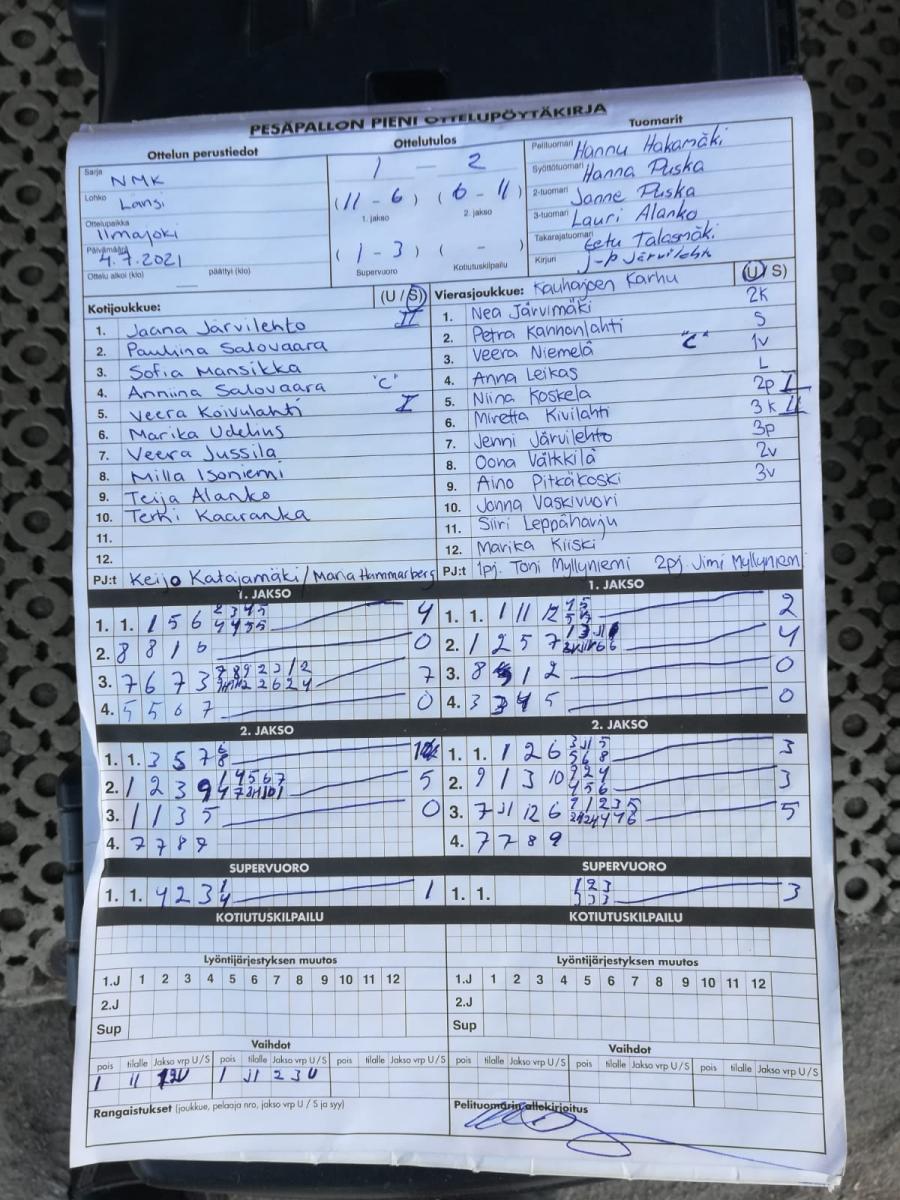 PESÄPALLON PIENI OTTELUPÖYTÄKIRJA
Ottelun perustiedot
Sarja NMK
Lohko Länsi
Ottelupaikka Ilmajoki
Päivämäärä 4.7.2021
Ottelu alkoi (klo) päättyi (klo)
Ottelutulos
1 - 2
(11 - 6) (6 - 11)
1. jakso 2. jakso
(1 - 3) ( - )
Supervuoro Kotiutuskilpailu
Tuomarit
Pelituomari Hannu Hakamäki
Syöttötuomari Hanna Puska
2-tuomari Janne Puska
3-tuomari Lauri Alanko
Takarajatuomari Eetu Talasmäki
Kirjuri J-P Järvilehto
Kotijoukkue: (U / S)
1. Jaana Järvilehto II
2. Pauliina Salovaara
3. Sofia Mansikka
4. Anniina Salovaara "C"
5. Veera Koivulahti I
6. Marika Udelius
7. Veera Jussila
8. Milla Isoniemi
9. Teija Alanko
10. Terhi Kaaranka
11.
12.
PJ:t Keijo Katajamäki / Maria Hammarberg
Vierasjoukkue: Kauhajoen Karhu (U / S)
1. Nea Järvimäki 2K
2. Petra Kannonlahti S
3. Veera Niemelä "C" 1v
4. Anna Leikas L
5. Niina Koskela 2p I
6. Miretta Kivilahti 3k II
7. Jenni Järvilehto 3p
8. Oona Välkkilä 2v
9. Aino Pitkäkoski 3v
10. Jonna Vaskivuori
11. Siiri Leppäharju
12. Marika Kiiski
PJ:t 1pj. Toni Myllyniemi 2pj. Jimi Myllyniemi
1. JAKSO
1. 1. 1 5 6 4
2. 8 8 1 6 0
3. 7 6 7 3 7
4. 5 5 6 7 0
1. JAKSO
1. 1. 1 11 12 2
2. 1 2 5 7 4
3. 8 1 2 0
4. 3 4 5 0
2. JAKSO
1. 1. 3 5 7 6 8
2. 1 2 3 9 5
3. 1 1 3 5 0
4. 7 7 8 9
2. JAKSO
1. 1. 1 2 6 3
2. 9 1 3 10 3
3. 7 11 12 6 5
4. 7 7 8 9
SUPERVUORO
1. 1. 4 2 3 1 4 1
SUPERVUORO
1. 1. 1 2 3 3 3 3 3
KOTIUTUSKILPAILU
KOTIUTUSKILPAILU
Lyöntijärjestyksen muutos
1.J 1 2 3 4 5 6 7 8 9 10 11 12
2.J
Sup
Lyöntijärjestyksen muutos
1.J 1 2 3 4 5 6 7 8 9 10 11 12
2.J
Sup
Vaihdot
pois tilalle Jakso vrp U/S pois tilalle Jakso vrp U/S pois tilalle Jakso vrp U/S
1 11 1 11 2 3 U
Vaihdot
pois tilalle Jakso vrp U/S pois tilalle Jakso vrp U/S pois tilalle Jakso vrp U/S
Rangaistukset (joukkue, pelaaja nro, jakso vrp U / S ja syy)
Pelituomarin allekirjoitus